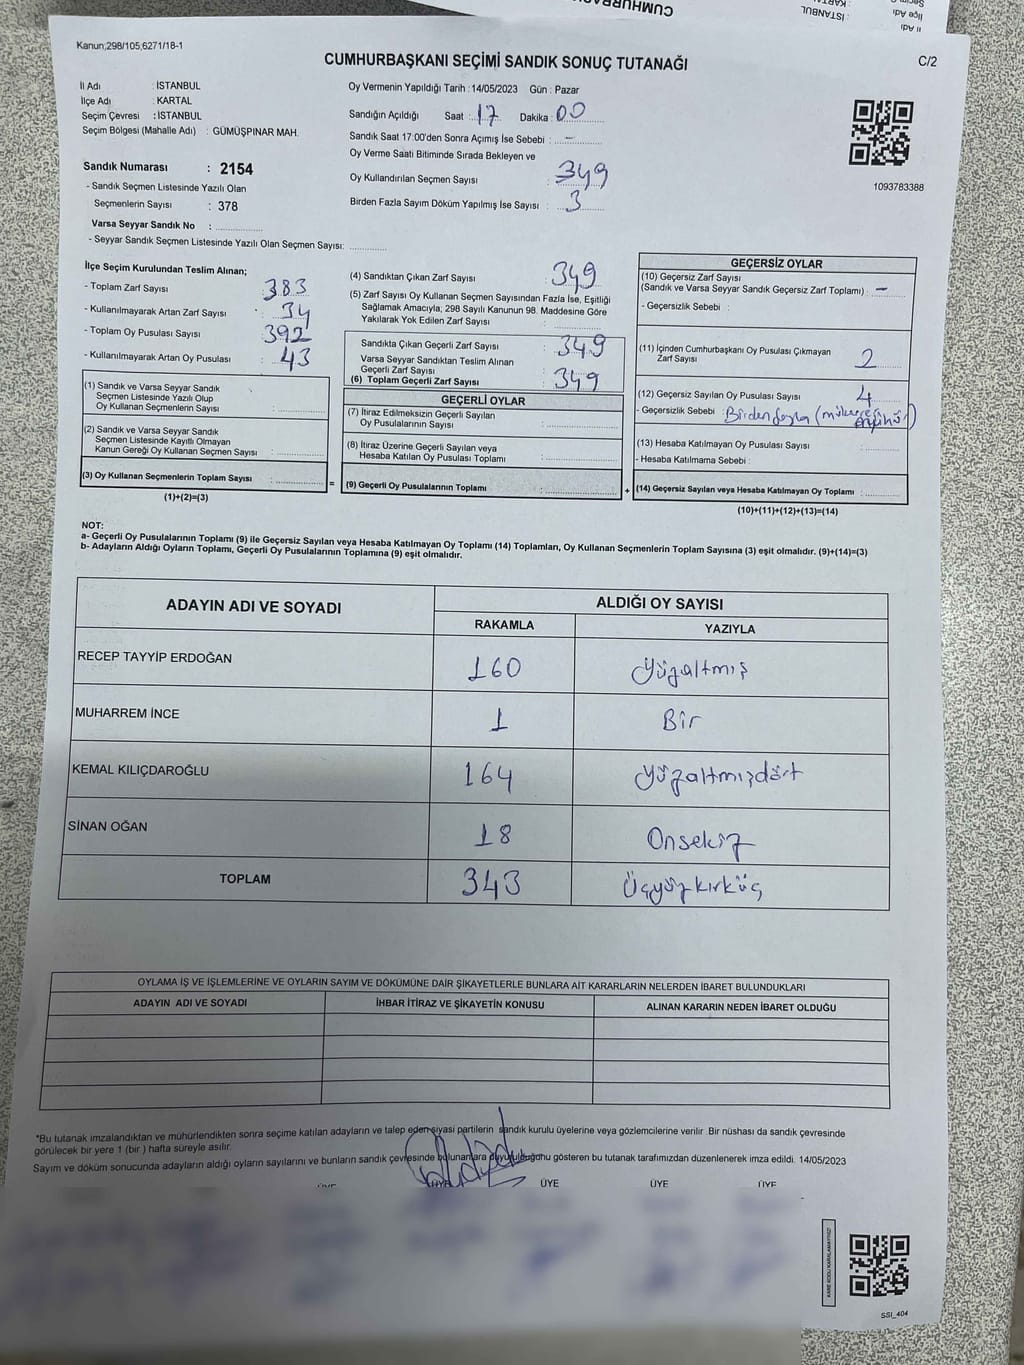 CUMHURBAŞ
İSTANBUL
İl Adı
İlçe Adı
Kanun;298/105;6271/18-1
CUMHURBAŞKANI SEÇİMİ SANDIK SONUÇ TUTANAĞI
C/2
İl Adı : İSTANBUL
İlçe Adı : KARTAL
Seçim Çevresi : İSTANBUL
Seçim Bölgesi (Mahalle Adı) : GÜMÜŞPINAR MAH.
Sandık Numarası : 2154
- Sandık Seçmen Listesinde Yazılı Olan
Seçmenlerin Sayısı : 378
Varsa Seyyar Sandık No :
- Seyyar Sandık Seçmen Listesinde Yazılı Olan Seçmen Sayısı:
Oy Vermenin Yapıldığı Tarih : 14/05/2023 Gün : Pazar
Sandığın Açıldığı Saat : 17 Dakika : 00
Sandık Saat 17:00'den Sonra Açımış İse Sebebi : —
Oy Verme Saati Bitiminde Sırada Bekleyen ve
Oy Kullandırılan Seçmen Sayısı : 349
Birden Fazla Sayım Döküm Yapılmış İse Sayısı : 3
1093783388
İlçe Seçim Kurulundan Teslim Alınan;
- Toplam Zarf Sayısı : 383
- Kullanılmayarak Artan Zarf Sayısı : 34
- Toplam Oy Pusulası Sayısı : 392
- Kullanılmayarak Artan Oy Pusulası : 43
(1) Sandık ve Varsa Seyyar Sandık
Seçmen Listesinde Yazılı Olup
Oy Kullanan Seçmenlerin Sayısı :
(2) Sandık ve Varsa Seyyar Sandık
Seçmen Listesinde Kayıtlı Olmayan
Kanun Gereği Oy Kullanan Seçmen Sayısı :
(3) Oy Kullanan Seçmenlerin Toplam Sayısı : =
(1)+(2)=(3)
(4) Sandıktan Çıkan Zarf Sayısı : 349
(5) Zarf Sayısı Oy Kullanan Seçmen Sayısından Fazla İse, Eşitliği
Sağlamak Amacıyla; 298 Sayılı Kanunun 98. Maddesine Göre
Yakılarak Yok Edilen Zarf Sayısı :
Sandıkta Çıkan Geçerli Zarf Sayısı : 349
Varsa Seyyar Sandıktan Teslim Alınan
Geçerli Zarf Sayısı :
(6) Toplam Geçerli Zarf Sayısı : 349
GEÇERLİ OYLAR
(7) İtiraz Edilmeksizin Geçerli Sayılan
Oy Pusulasının Sayısı :
(8) İtiraz Üzerine Geçerli Sayılan veya
Hesaba Katılan Oy Pusulası Toplamı :
(9) Geçerli Oy Pusulalarının Toplamı : +
GEÇERSİZ OYLAR
(10) Geçersiz Zarf Sayısı
(Sandık ve Varsa Seyyar Sandık Geçersiz Zarf Toplamı) : —
- Geçersizlik Sebebi :
(11) İçinden Cumhurbaşkanı Oy Pusulası Çıkmayan
Zarf Sayısı : 2
(12) Geçersiz Sayılan Oy Pusulası Sayısı : 4
- Geçersizlik Sebebi : Birden fazla
(13) Hesaba Katılmayan Oy Pusulası Sayısı :
- Hesaba Katılmama Sebebi :
(14) Geçersiz Sayılan veya Hesaba Katılmayan Oy Toplamı :
(10)+(11)+(12)+(13)=(14)
NOT:
a- Geçerli Oy Pusulalarının Toplamı (9) ile Geçersiz Sayılan veya Hesaba Katılmayan Oy Toplamı (14) Toplamları, Oy Kullanan Seçmenlerin Toplam Sayısına (3) eşit olmalıdır. (9)+(14)=(3)
b- Adayların Aldığı Oyların Toplamı, Geçerli Oy Pusulalarının Toplamına (9) eşit olmalıdır.
ADAYIN ADI VE SOYADI
ALDIĞI OY SAYISI
RAKAMLA YAZIYLA
RECEP TAYYİP ERDOĞAN 160 Yüzaltmış
MUHARREM İNCE 1 Bir
KEMAL KILIÇDAROĞLU 164 Yüzaltmışdört
SİNAN OĞAN 18 Onsekiz
TOPLAM 343 Üçyüzkırküç
OYLAMA İŞ VE İŞLEMLERİNE VE OYLARIN SAYIM VE DÖKÜMÜNE DAİR ŞİKAYETLERLE BUNLARA AİT KARARLARIN NELERDEN İBARET BULUNDUKLARI
ADAYIN ADI VE SOYADI İHBAR İTİRAZ VE ŞİKAYETİN KONUSU ALINAN KARARIN NEDEN İBARET OLDUĞU
*Bu tutanak imzalandıktan ve mühürlendikten sonra seçime katılan adayların ve talep eden siyasi partilerin sandık kurulu üyelerine veya gözlemcilerine verilir. Bir nüshası da sandık çevresinde
görülecek bir yere 1 (bir) hafta süreyle asılır.
Sayım ve döküm sonucunda adayların aldığı oyların sayılarını ve bunların sandık çevresinde bulunanlara duyurulduğunu gösteren bu tutanak tarafımızdan düzenlenerek imza edildi. 14/05/2023
ÜYE ÜYE ÜYE ÜYE ÜYE
KARE KODU KARALAMAYINIZ!
SSI_404